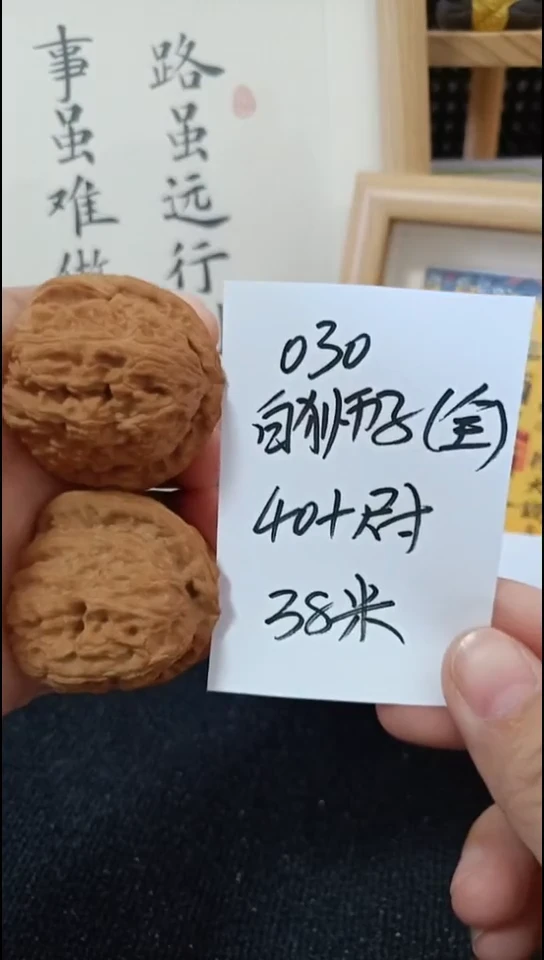 路虽远行
事虽难做
030
白狮子(全)
40+尺寸
38米